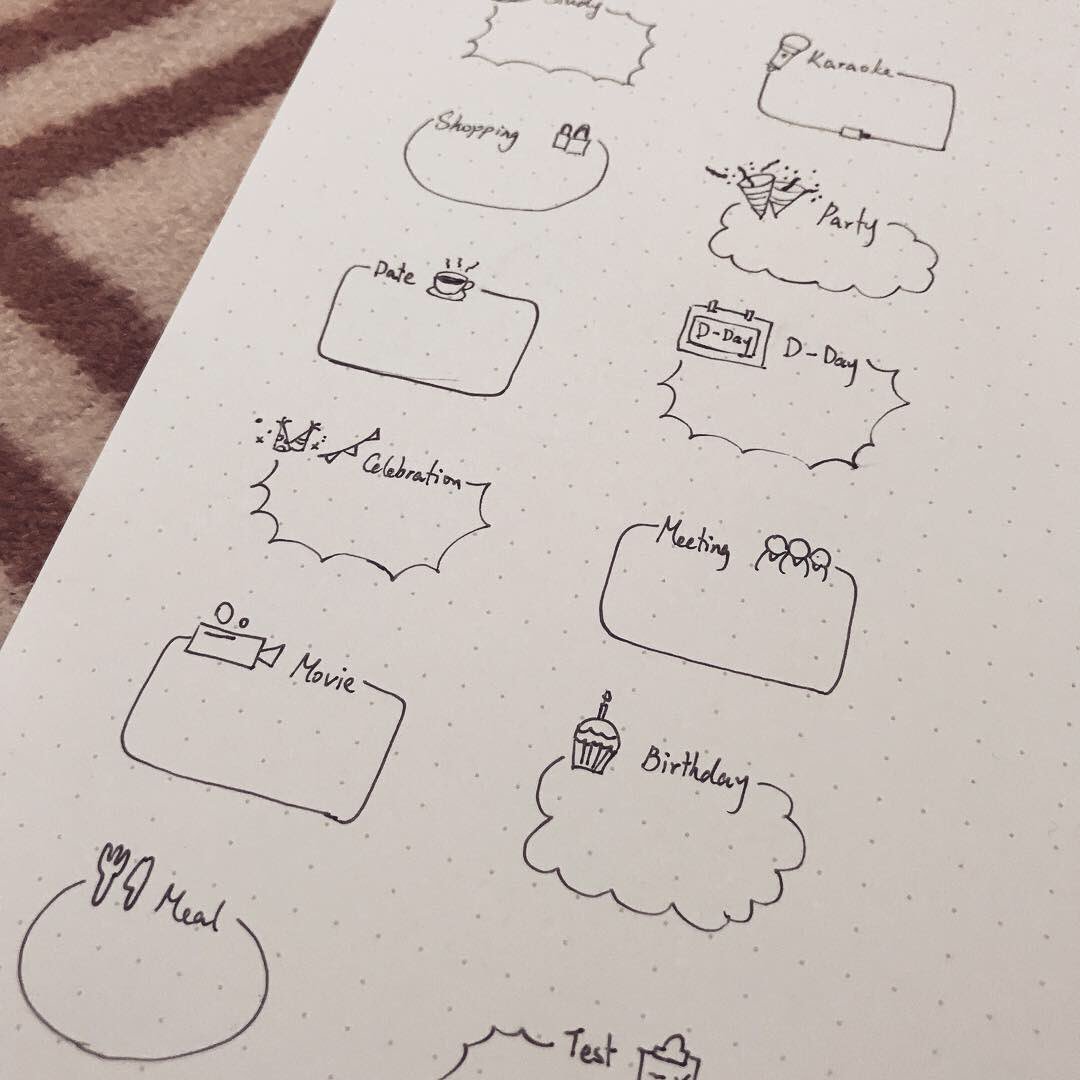 Study
Karaoke
Shopping
Party
Date
D-Day
D-Day
Celebration
Meeting
Movie
Birthday
Meal
Test